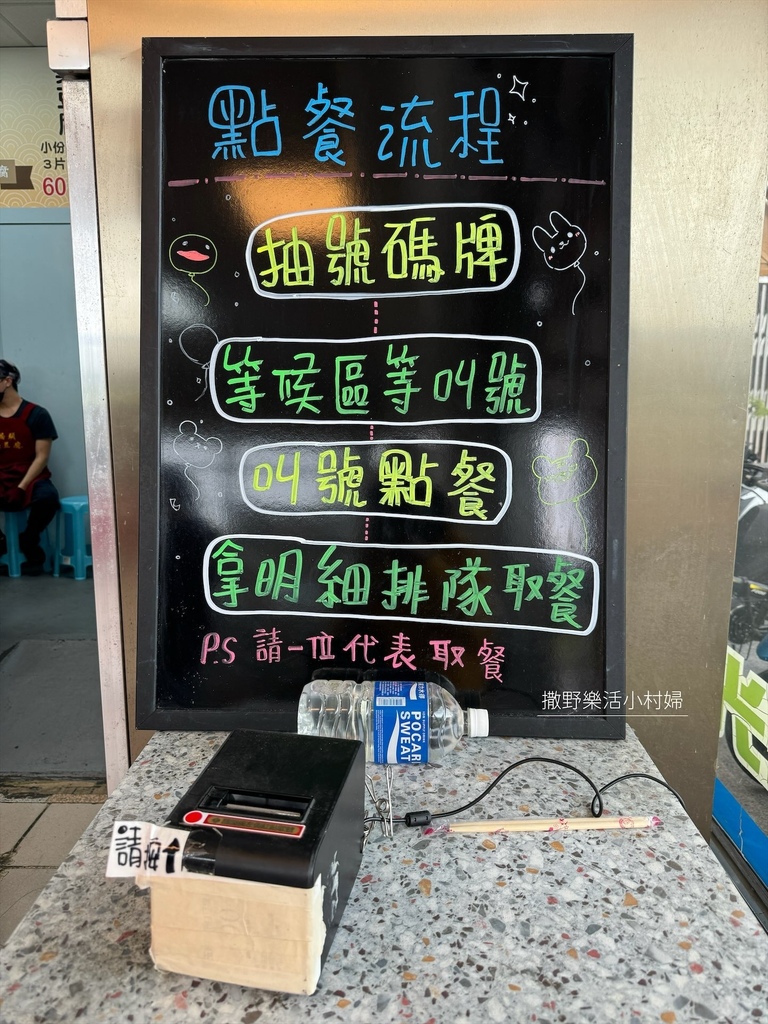 點餐流程
抽號碼牌
等候區等叫號
叫號點餐
拿明細排隊取餐
P.S 請一位代表取餐
小份
3片
60
POCARI
SWEAT
撒野樂活小村婦
請按